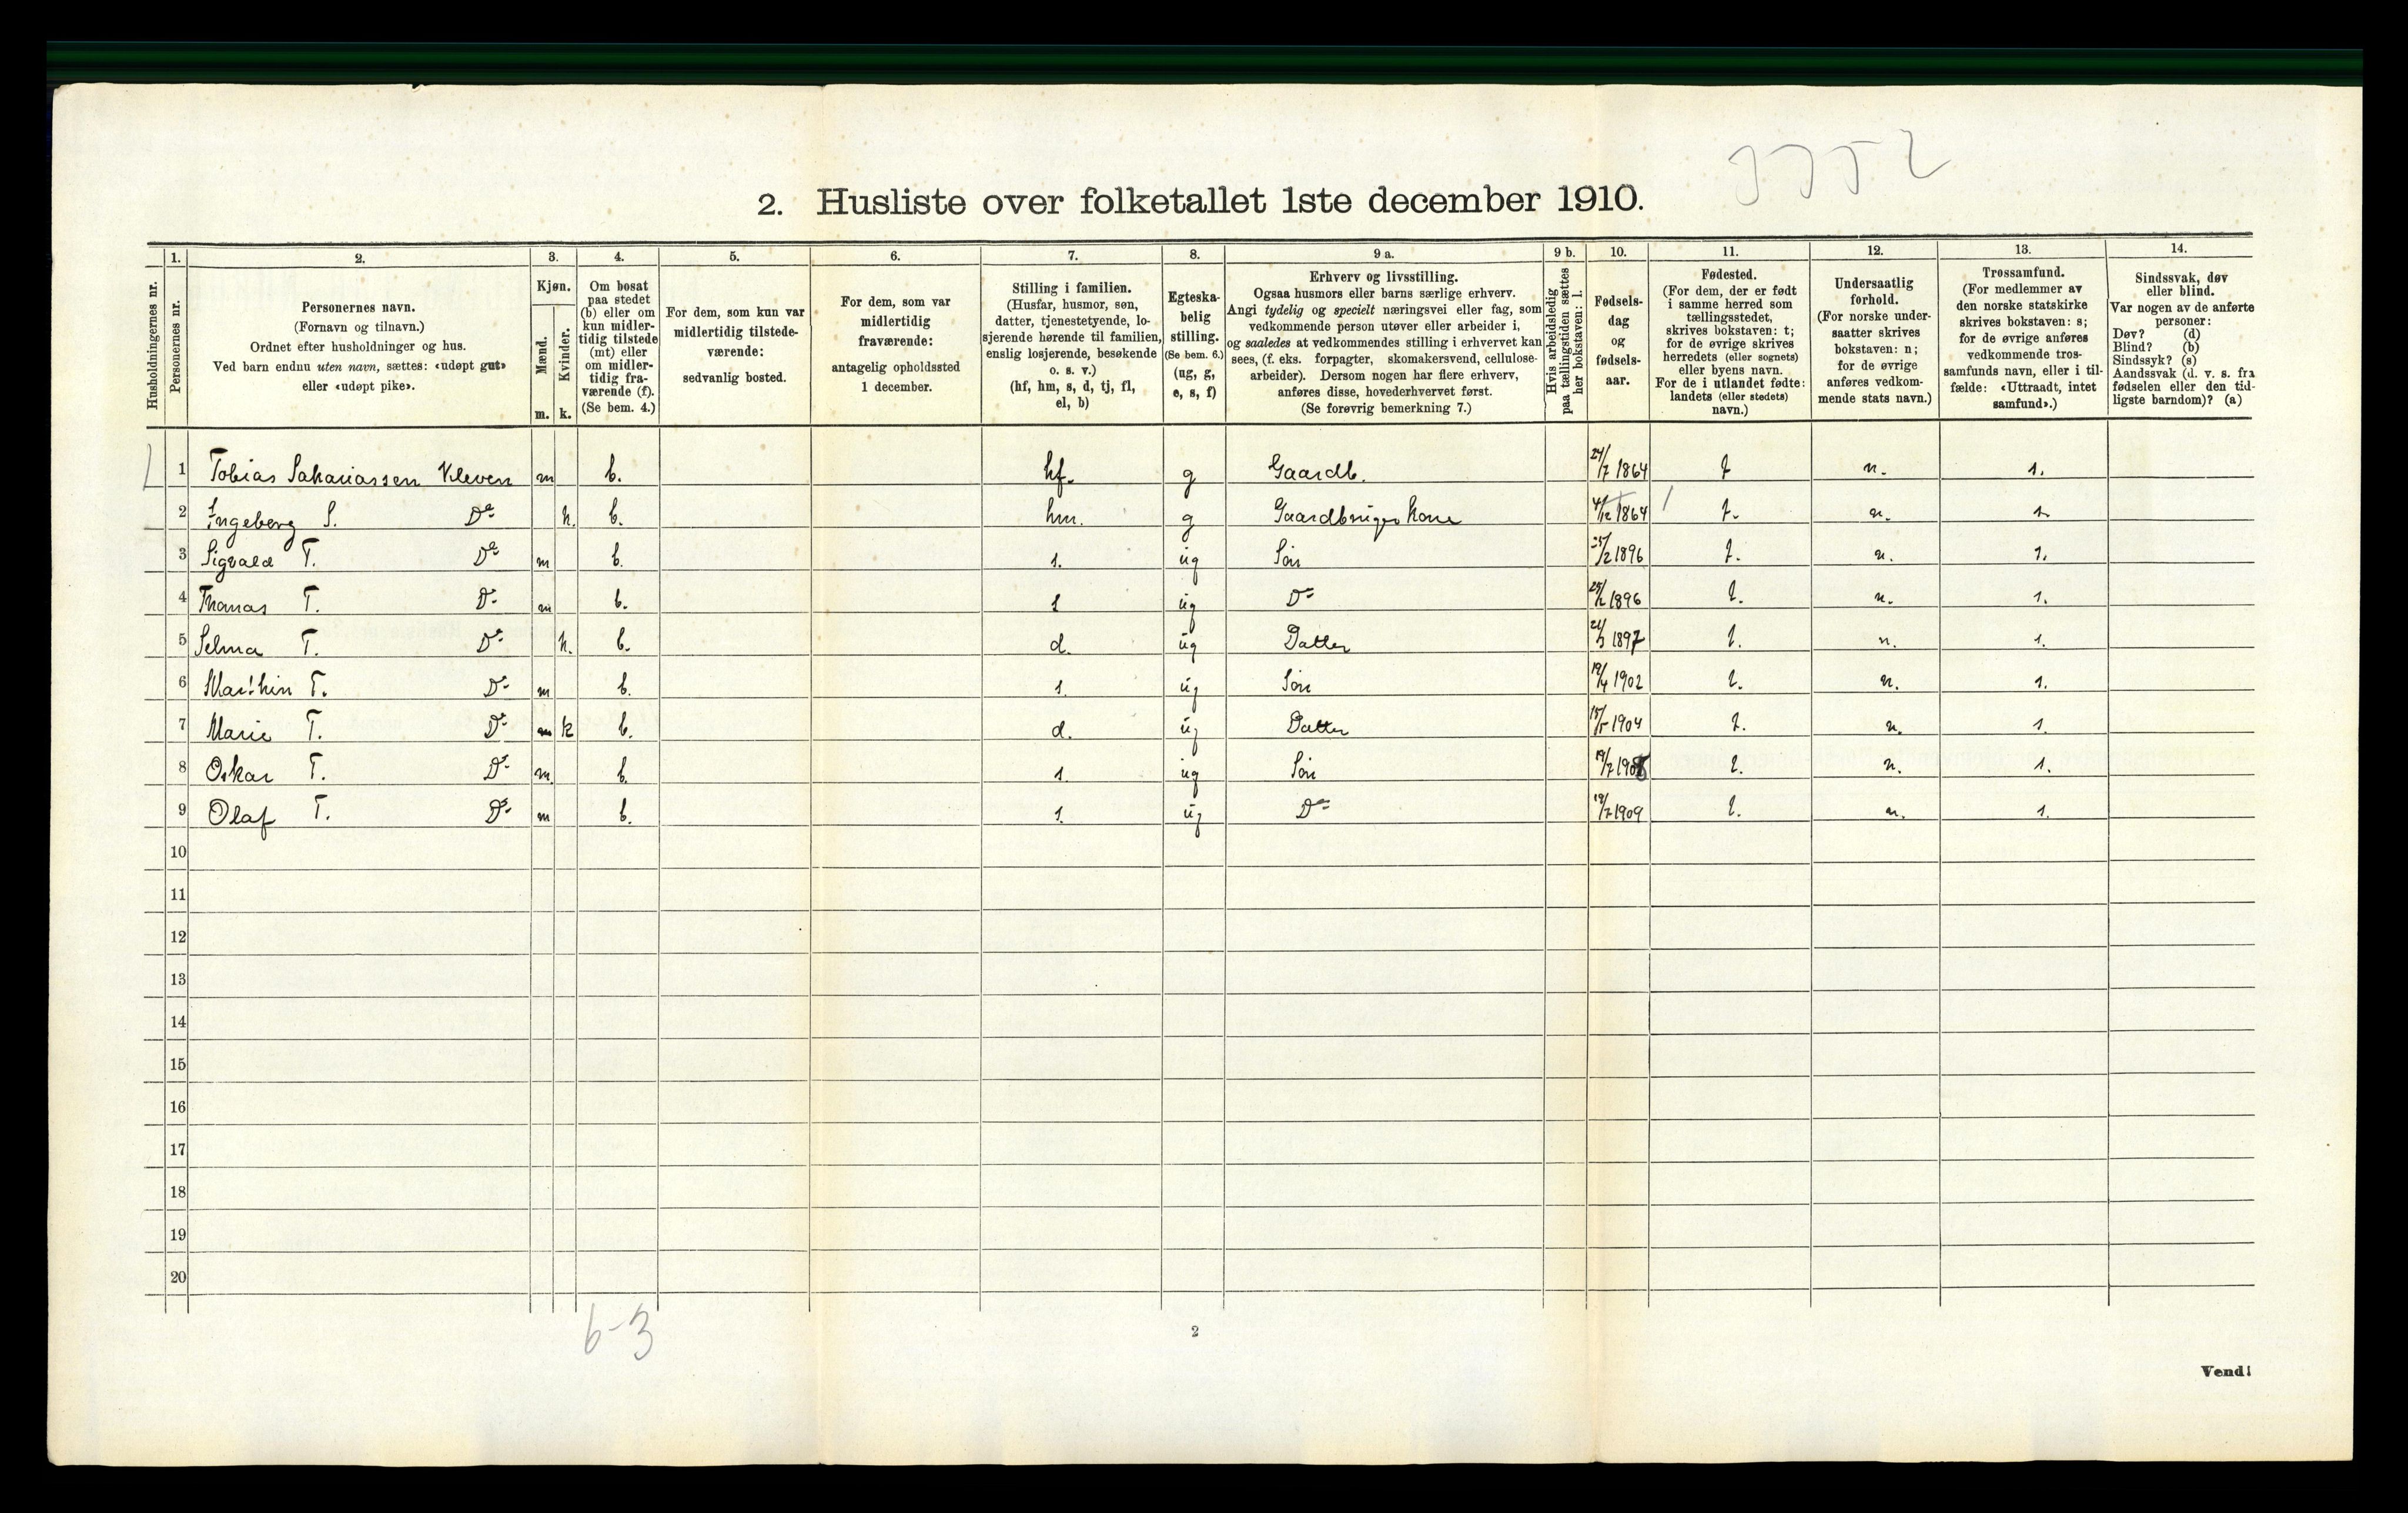 3352
2. Husliste over folketallet 1ste december 1910.
Husholdningernes nr.
1. Personernes nr.
2. Personernes navn.
(Fornavn og tilnavn.)
Ordnet efter husholdninger og hus.
Ved barn endnu uten navn, sættes: «udøpt gut»
eller «udøpt pike».
3. Kjøn.
Mænd. m.
Kvinder. k.
4. Om bosat
paa stedet
(b) eller om
kun midler-
tidig tilstede
(mt) eller
om midler-
tidig fra-
værende (f).
(Se bem. 4.)
5. For dem, som kun var
midlertidig tilstede-
værende:
sedvanlig bosted.
6. For dem, som var
midlertidig
fraværende:
antagelig opholdssted
1 december.
7. Stilling i familien.
(Husfar, husmor, søn,
datter, tjenestetyende, lo-
sjerende hørende til familien,
enslig losjerende, besøkende
o. s. v.)
(hf, hm, s, d, tj, fl,
el, b)
8. Egteska-
belig
stilling.
(Se bem. 6.)
(ug, g,
e, s, f)
9 a. Erhverv og livsstilling.
Ogsaa husmors eller barns særlige erhverv.
Angi tydelig og specielt næringsvei eller fag, som
vedkommende person utøver eller arbeider i,
og saaledes at vedkommendes stilling i erhvervet kan
sees, (f. eks. forpagter, skomakersvend, cellulose-
arbeider). Dersom nogen har flere erhverv,
anføres disse, hovederhvervet først.
(Se forøvrig bemerkning 7.)
9 b. Hvis arbeidsledig
paa tællingstiden sættes
her bokstaven: l.
10. Fødsels-
dag
og
fødsels-
aar.
11. Fødested.
(For dem, der er født
i samme herred som
tællingsstedet,
skrives bokstaven: t;
for de øvrige skrives
herredets (eller sognets)
eller byens navn.
For de i utlandet fødte:
landets (eller stedets)
navn.)
12. Undersaatlig
forhold.
(For norske under-
saatter skrives
bokstaven: n;
for de øvrige
anføres vedkom-
mende stats navn.)
13. Trossamfund.
(For medlemmer av
den norske statskirke
skrives bokstaven: s;
for de øvrige anføres
vedkommende tros-
samfunds navn, eller i til-
fælde: «Uttraadt, intet
samfund».)
14. Sindssvak, døv
eller blind.
Var nogen av de anførte
personer:
Døv? (d)
Blind? (b)
Sindssyk? (s)
Aandssvak (d. v. s. fra
fødselen eller den tid-
ligste barndom)? (a)
1 Tobias Sakariassen Kleven m b. hf. g Gaardb. 24/7 1864 t n. s.
2 Ingeberg S. Do k. b. hm. g Gaardbruger kone 4/12 1864 t. n. s.
3 Sigvald T. Do m b. s. ug Søn 25/2 1896 t. n. s.
4 Thomas T. Do m b. s ug Do 25/2 1896 t. n. s.
5 Selma T. Do k. b. d. ug Datter 1897 t. n. s.
6 Marthin T. Do m b. s. ug Søn 19/4 1902 t. n. s.
7 Marie T. Do m k b. d. ug Datter 15/5 1904 t. n. s.
8 Oskar T. Do m. b. s. ug Søn 19/7 1908 t. n. s.
9 Olaf T. Do m b. s. ug Do 19/7 1909 t. n. s.
10
11
12
13
14
15
16
17
18
19
20
6-3
2
Vend!